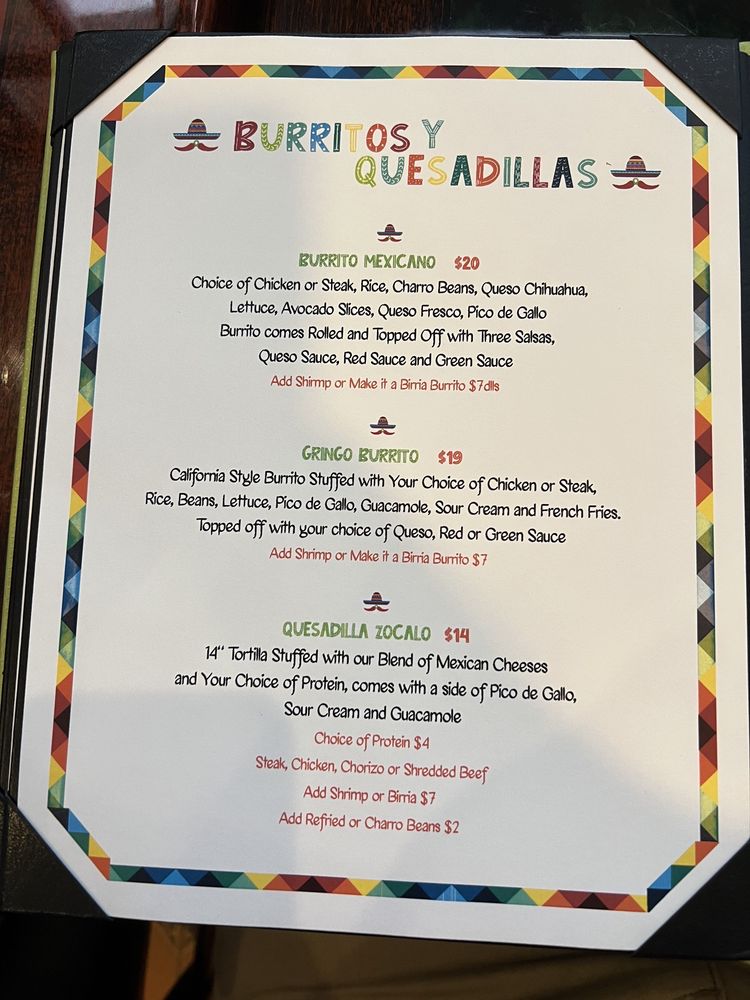 BURRITOS Y
QUESADILLAS
BURRITO MEXICANO $20
Choice of Chicken or Steak, Rice, Charro Beans, Queso Chihuahua,
Lettuce, Avocado Slices, Queso Fresco, Pico de Gallo
Burrito comes Rolled and Topped Off with Three Salsas,
Queso Sauce, Red Sauce and Green Sauce
Add Shirmp or Make it a Birria Burrito $7dlls
GRINGO BURRITO $19
California Style Burrito Stuffed with Your Choice of Chicken or Steak,
Rice, Beans, Lettuce, Pico de Gallo, Guacamole, Sour Cream and French Fries.
Topped off with your choice of Queso, Red or Green Sauce
Add Shrimp or Make it a Birria Burrito $7
QUESADILLA ZOCALO $14
14“ Tortilla Stuffed with our Blend of Mexican Cheeses
and Your Choice of Protein, comes with a side of Pico de Gallo,
Sour Cream and Guacamole
Choice of Protein $4
Steak, Chicken, Chorizo or Shredded Beef
Add Shrimp or Birria $7
Add Refried or Charro Beans $2